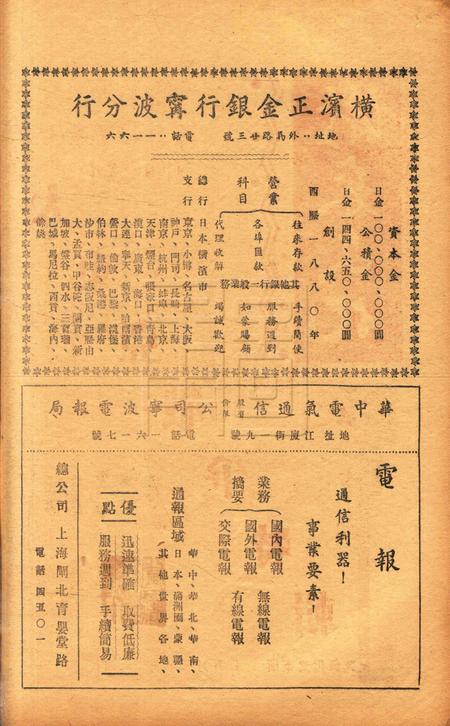 橫濱正金銀行甯波分行
地址‥外馬路廿三號 電話‥一一六六
資本金
日金一〇〇、〇〇〇、〇〇〇圓
公積金
日金一四四、六五〇、〇〇〇圓
創設
西曆一八八〇年
營業科目
往來存款 手續簡便
各埠匯款 服務週到
代理收解 竭誠歡迎
其他銀行一般業務 如蒙賜顧
總行 日本橫濱市
支行 東京、小樽、名古屋、大阪
神戶、門司、長崎、上海
南京、杭州、蚌埠、北京
天津、煙台、張家口、青島
漢口、廣東、海口、香港
大連、奉天、新京、哈爾濱
營口、倫敦、巴黎、漢堡
伯林、紐約、桑港、羅府
沙市、布哇、志阪尼、亞歷山
大、孟買、甲谷陀、蘭貢、新
加坡、盤谷、泗水、三寶壟
巴城、馬尼拉、西貢、海內
華中電氣通信股份有限公司寧波電報局
地址江廈街一九號 電話一六一七號
電報
通信利器！
事業要素！
業務摘要
國內電報 無線電報
國外電報 有線電報
交際電報
通報區域
華中、華北、華南、
日本、滿洲國、蒙疆、
其他世界各地、
優點
迅速準確 取費低廉
服務週到 手續簡易
總公司 上海閘北育嬰堂路
電話 四五〇一